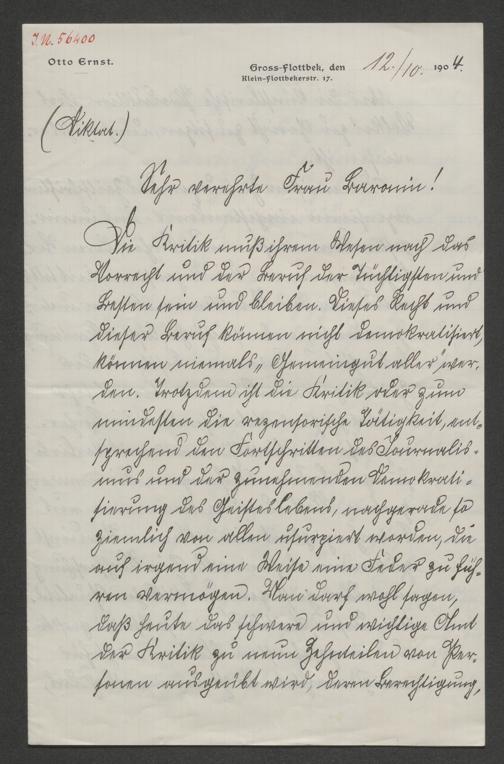 J.N. 56400
Otto Ernst.
Gross-Flottbek, den 12./10. 1904.
Klein-Flottbekerstr. 17.
(Diktat.)
Sehr verehrte Frau Baronin!
Die Kritik muß ihrem Wesen nach das
Vorrecht und der Beruf der Tüchtigsten und
Besten sein und bleiben. Dieses Recht und
dieser Beruf können nicht demokratisiert,
können niemals „Gemeingut aller" wer-
den. Trotzdem ist die Kritik oder zum
mindesten die rezensorische Tätigkeit, ent-
sprechend den Fortschritten des Journalis-
mus und der zunehmenden Demokrati-
sierung des Geisteslebens, nachgerade so
ziemlich von allen usurpiert worden, die
auf irgend eine Weise eine Feder zu füh-
ren vermögen. Man darf wohl sagen,
daß heute das schwere und wichtige Amt
der Kritik zu neun Zehnteilen von Per-
sonen ausgeübt wird, deren Berechtigung,